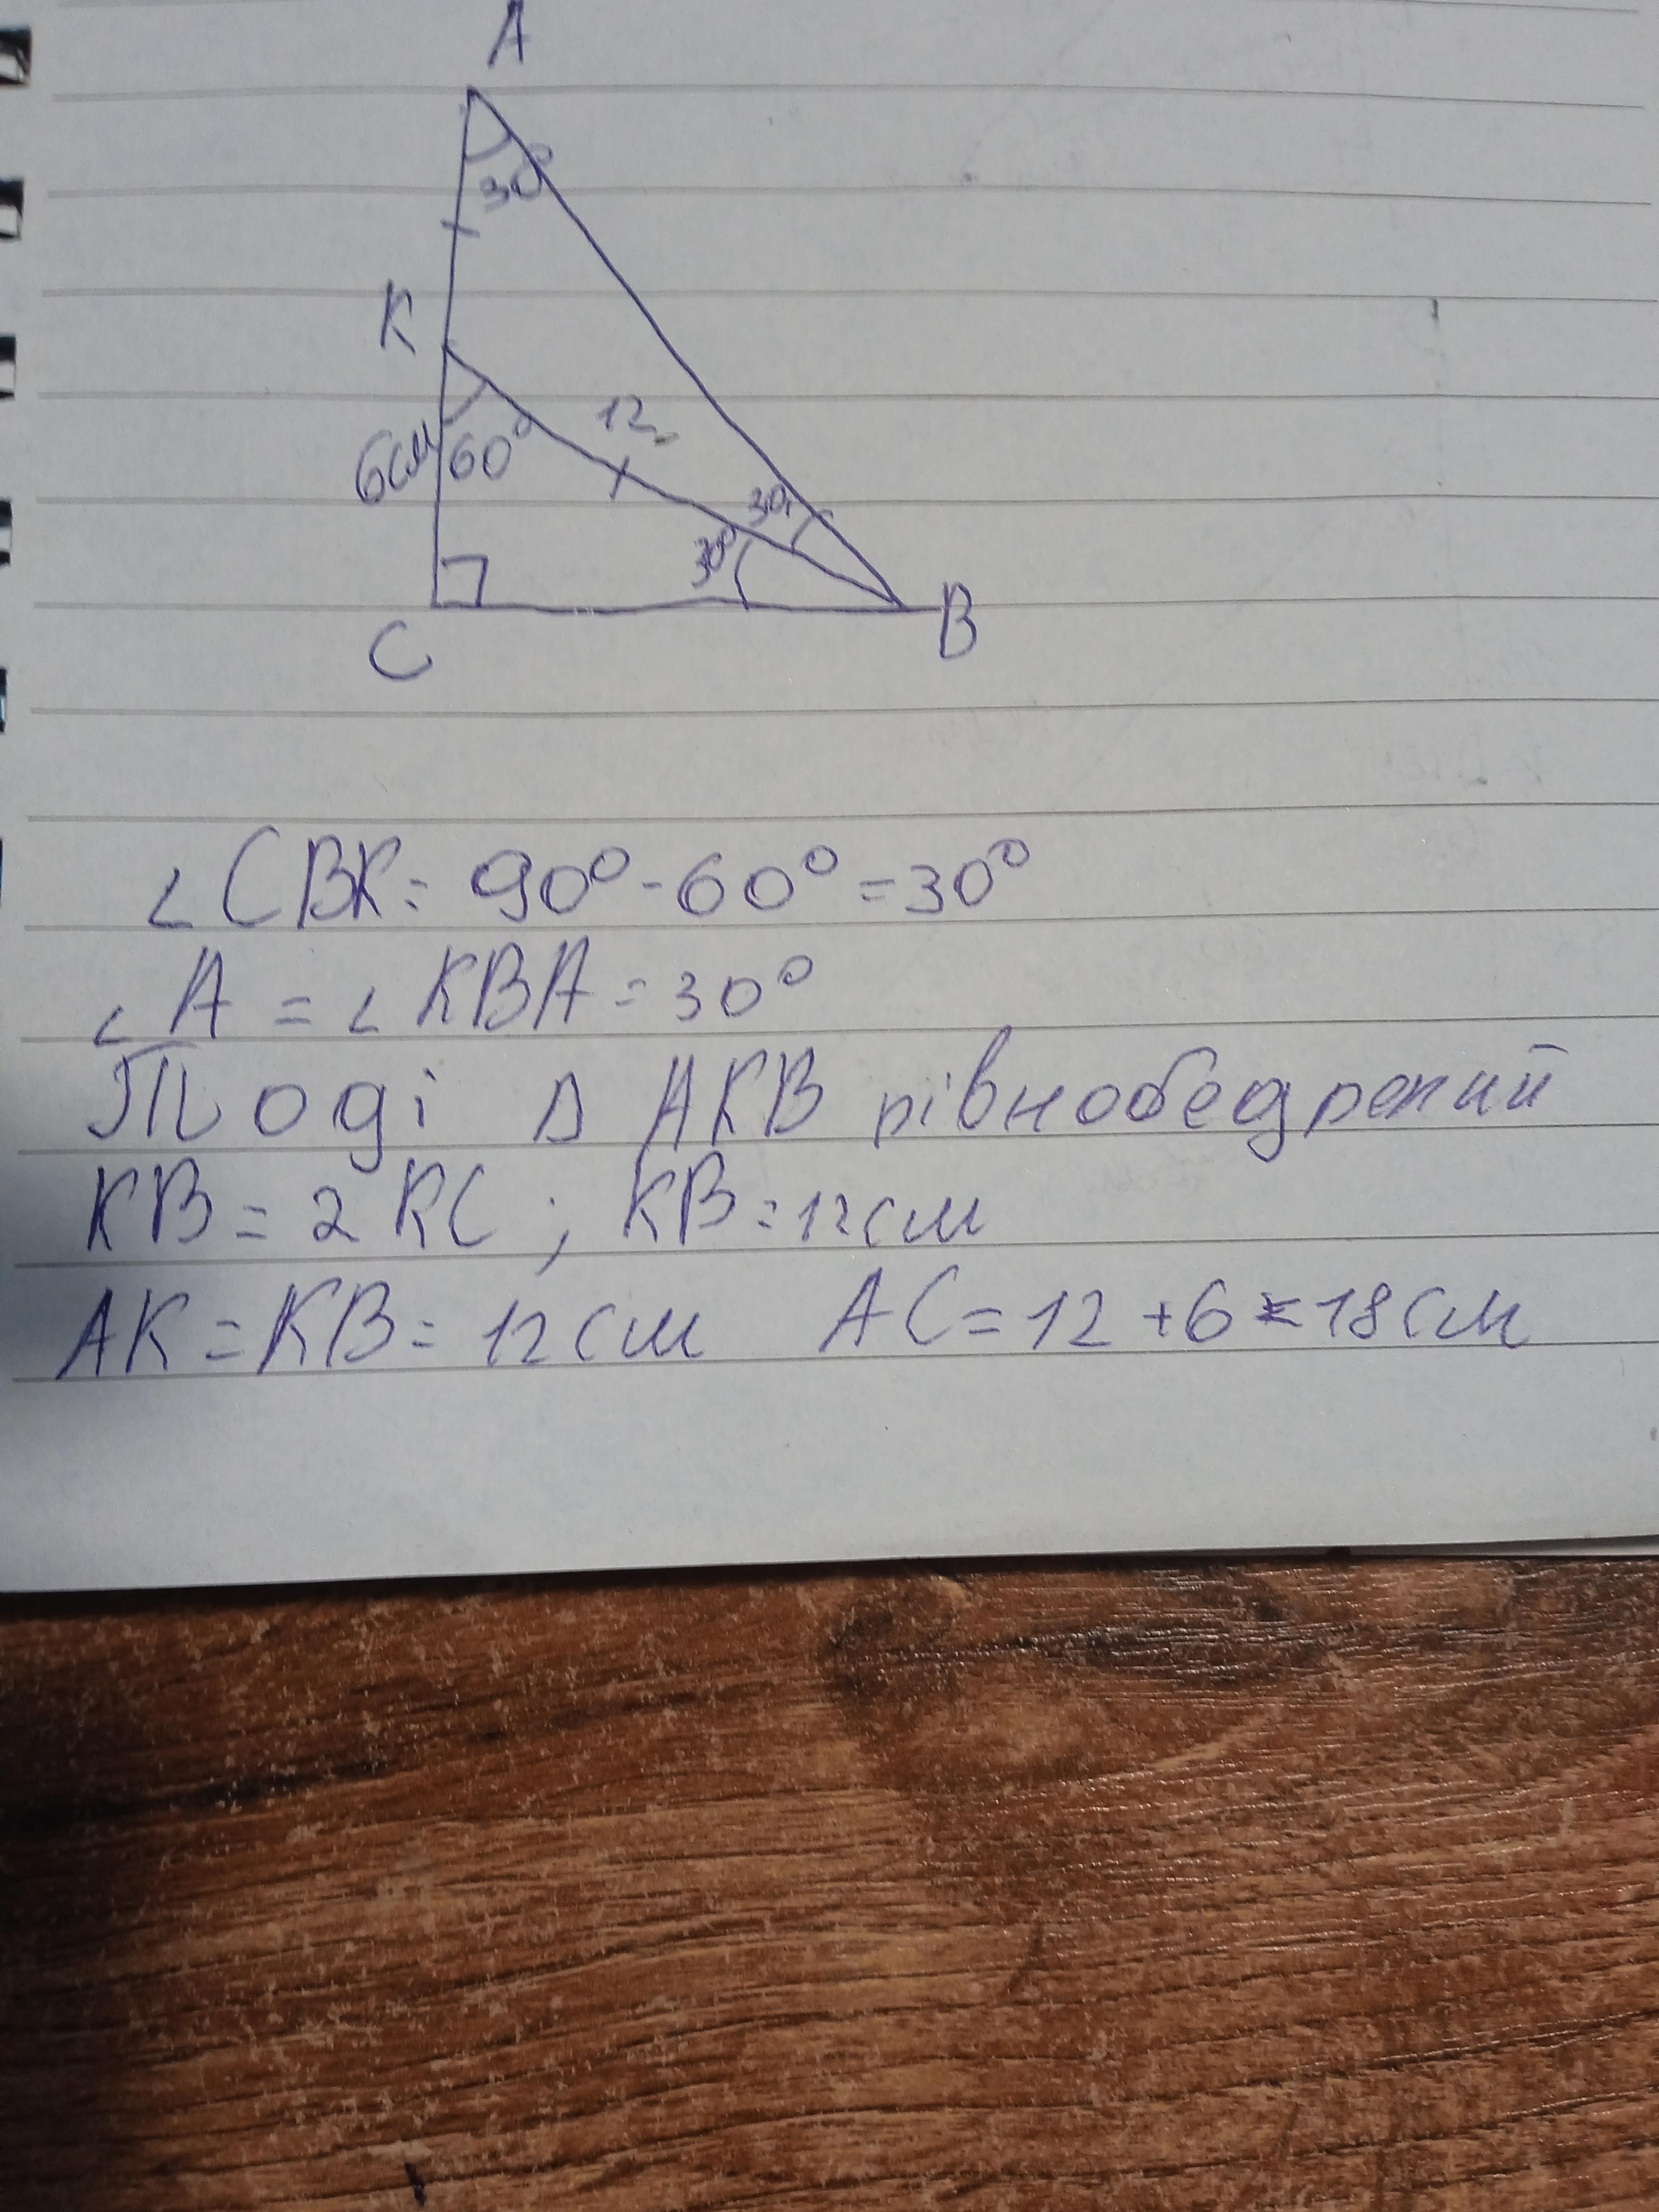 A
30°
K
12
6см
60°
30°
30°
C
B
∠CBK = 90° - 60° = 30°
∠A = ∠KBA = 30°
Тоді Δ AKB рівнобедрений
KB = 2 KC ; KB = 12см
AK = KB = 12 см AC = 12 + 6 = 18 см